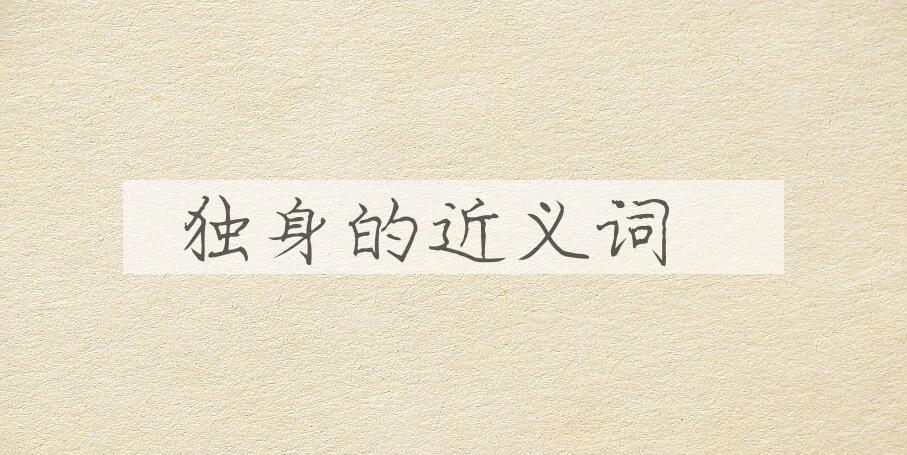 独身的近义词